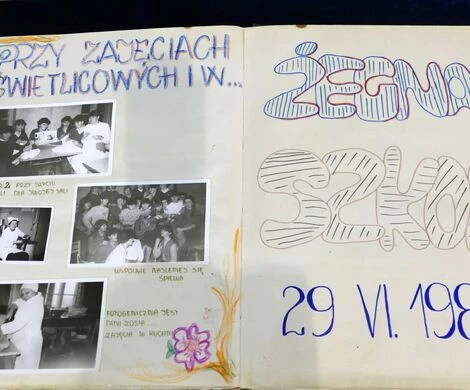 PRZY ZAJĘCIACH
ŚWIETLICOWYCH I W...
PRZY SZYCIU
DLA SWOJEJ SALI
WSPÓLNIE NAJLEPIEJ SIĘ
ŚPIEWA
FOTOGENICZNA JEST
PANI ZOSIA...
ZAJĘCIA W KUCHNI
ŻEGNA
SZKO
29 VI. 198